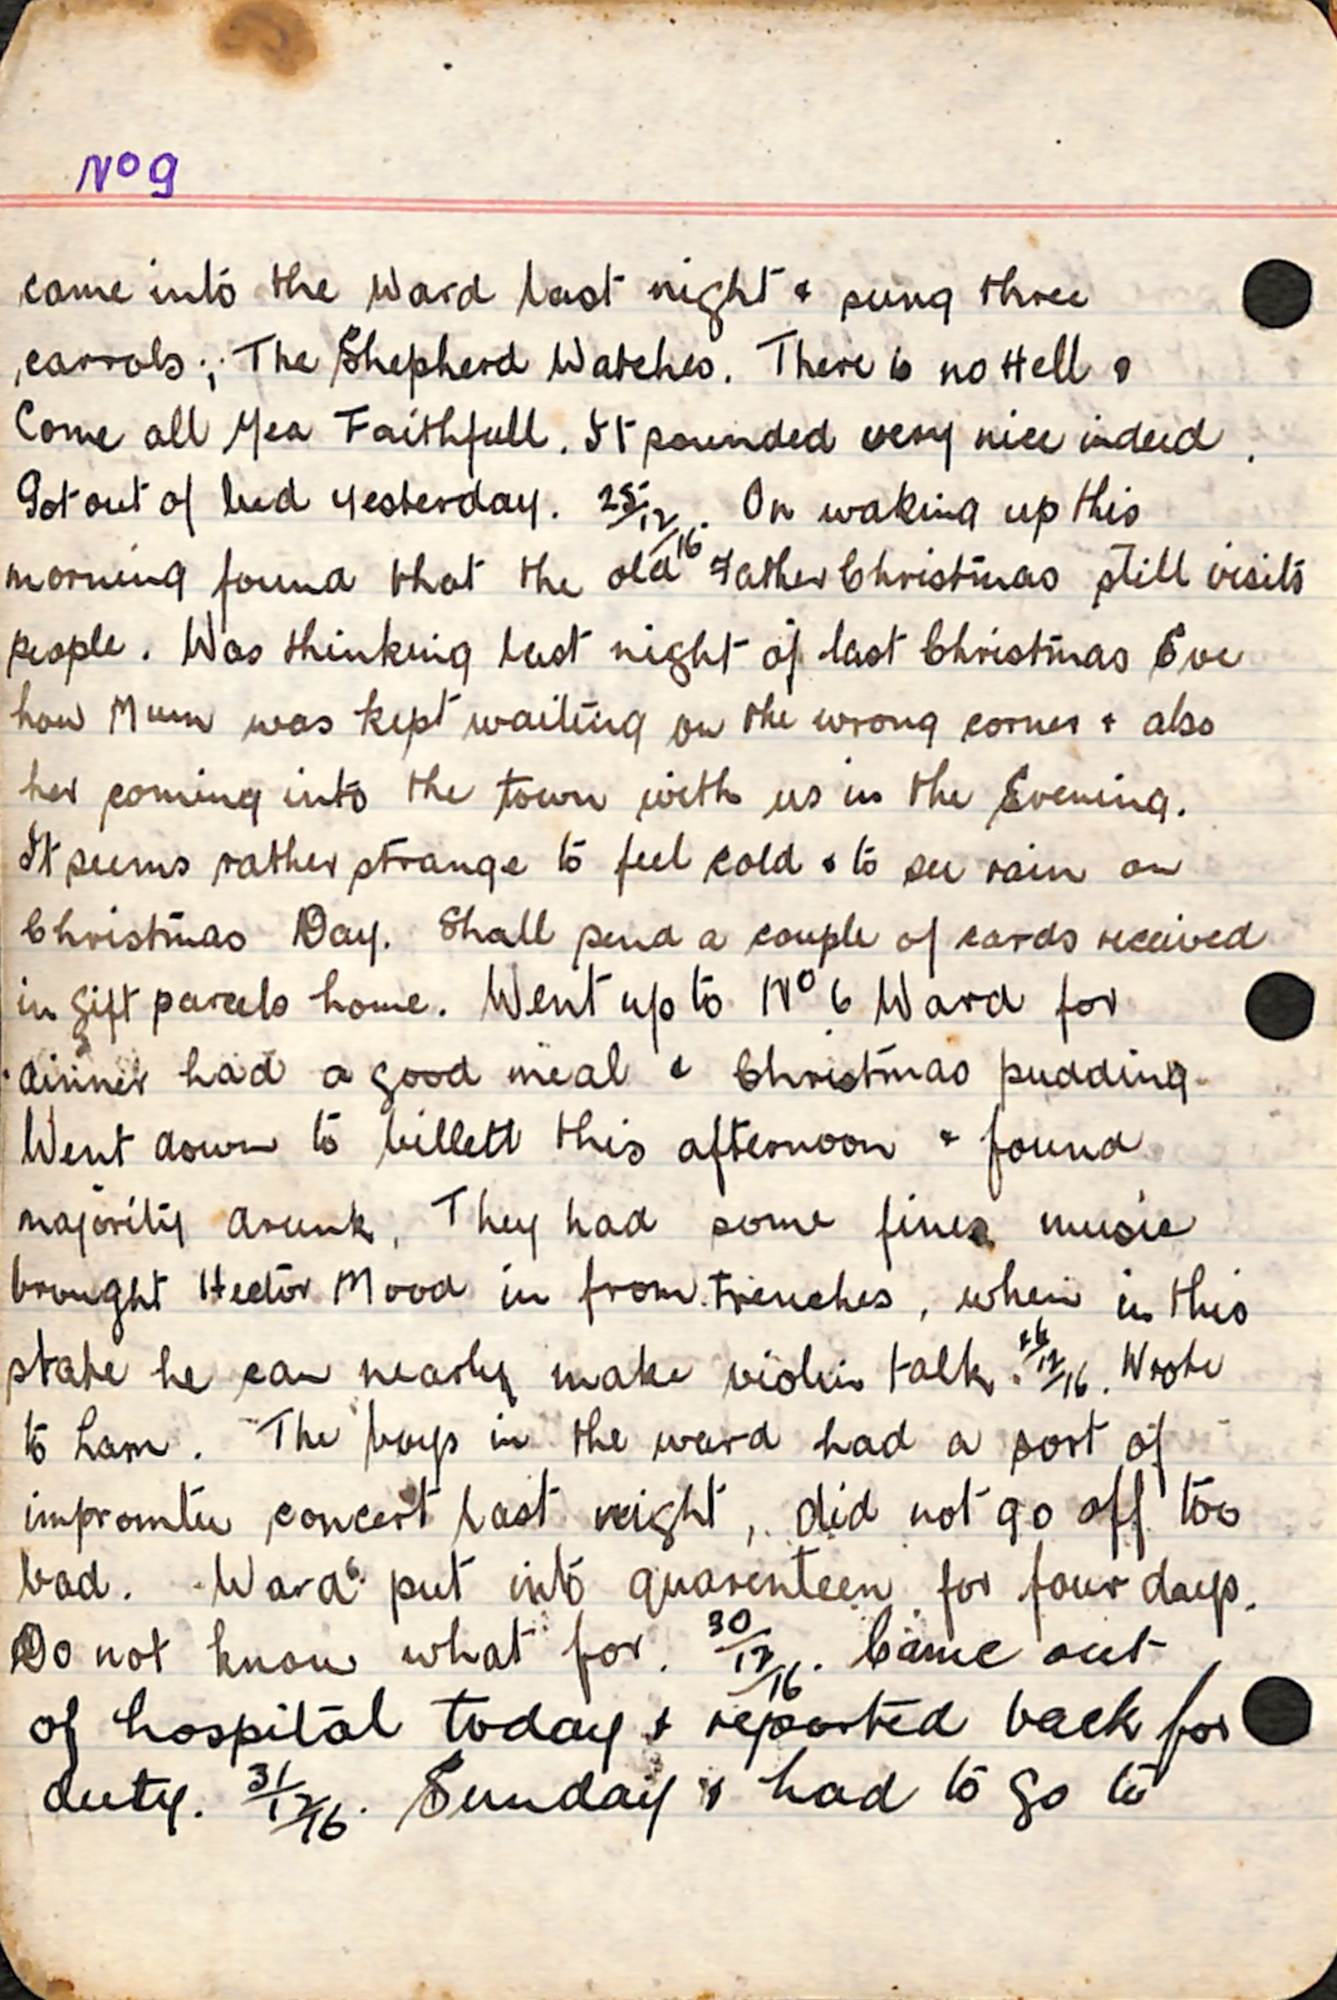 No 9
came into the Ward last night & sung three
carrols:; The Shepherd Watches. There is no Hell &
Come all Yea Faithfull. It sounded very nice indeed.
Got out of bed yesterday. 25/12/16. On waking up this
morning found that the old Father Christmas still visits
people. Was thinking last night of last Christmas Eve
how Mum was kept waiting on the wrong corner & also
her coming into the town with us in the Evening.
It seems rather strange to feel cold & to see rain on
Christmas Day. Shall send a couple of cards received
in gift parcels home. Went up to No 6 Ward for
dinner had a good meal & Christmas pudding.
Went down to billett this afternoon & found
majority drunk. They had some fine music
brought Hector Mood in from trenches, when in this
state he can nearly make violin talk. 26/12/16. Wrote
to ham. The boys in the ward had a sort of
impromtu concert last night, did not go off too
bad. Ward put into quarenteen for four days.
Do not know what for. 30/12/16. Came out
of hospital today & reported back for
duty. 31/12/16. Sunday & had to go to